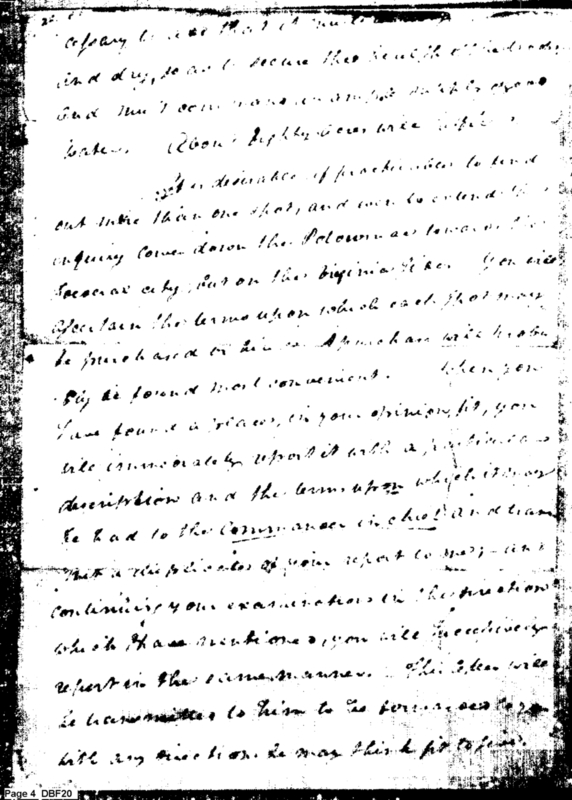 cessary to see that it must
and dry, so as to secure the health of the
and must command an ample supply of good
water. About Eighty acres will suffice
It is desirable if practicable to find
out more than one spot, and even to extend the
inquiry lower down the Potowmac towards the
Foederal city, but on the Virginia side. You will
ascertain the terms upon which each spot may
be purchased or A purchase will proba
bly be found most convenient. When you
have found a place, in your opinion, fit, you
will immediately report it with a particular
description and the terms upon which it may
be had to the Commander in chief and trans
mit a duplicate of your report to me, and
continuing your examination in the direction
which I have mentioned, you will successively
report in the same manner. This letter will
be transmitted to him to be forwarded to you
with any direction he may think fit to give.
Page 4 DBF20